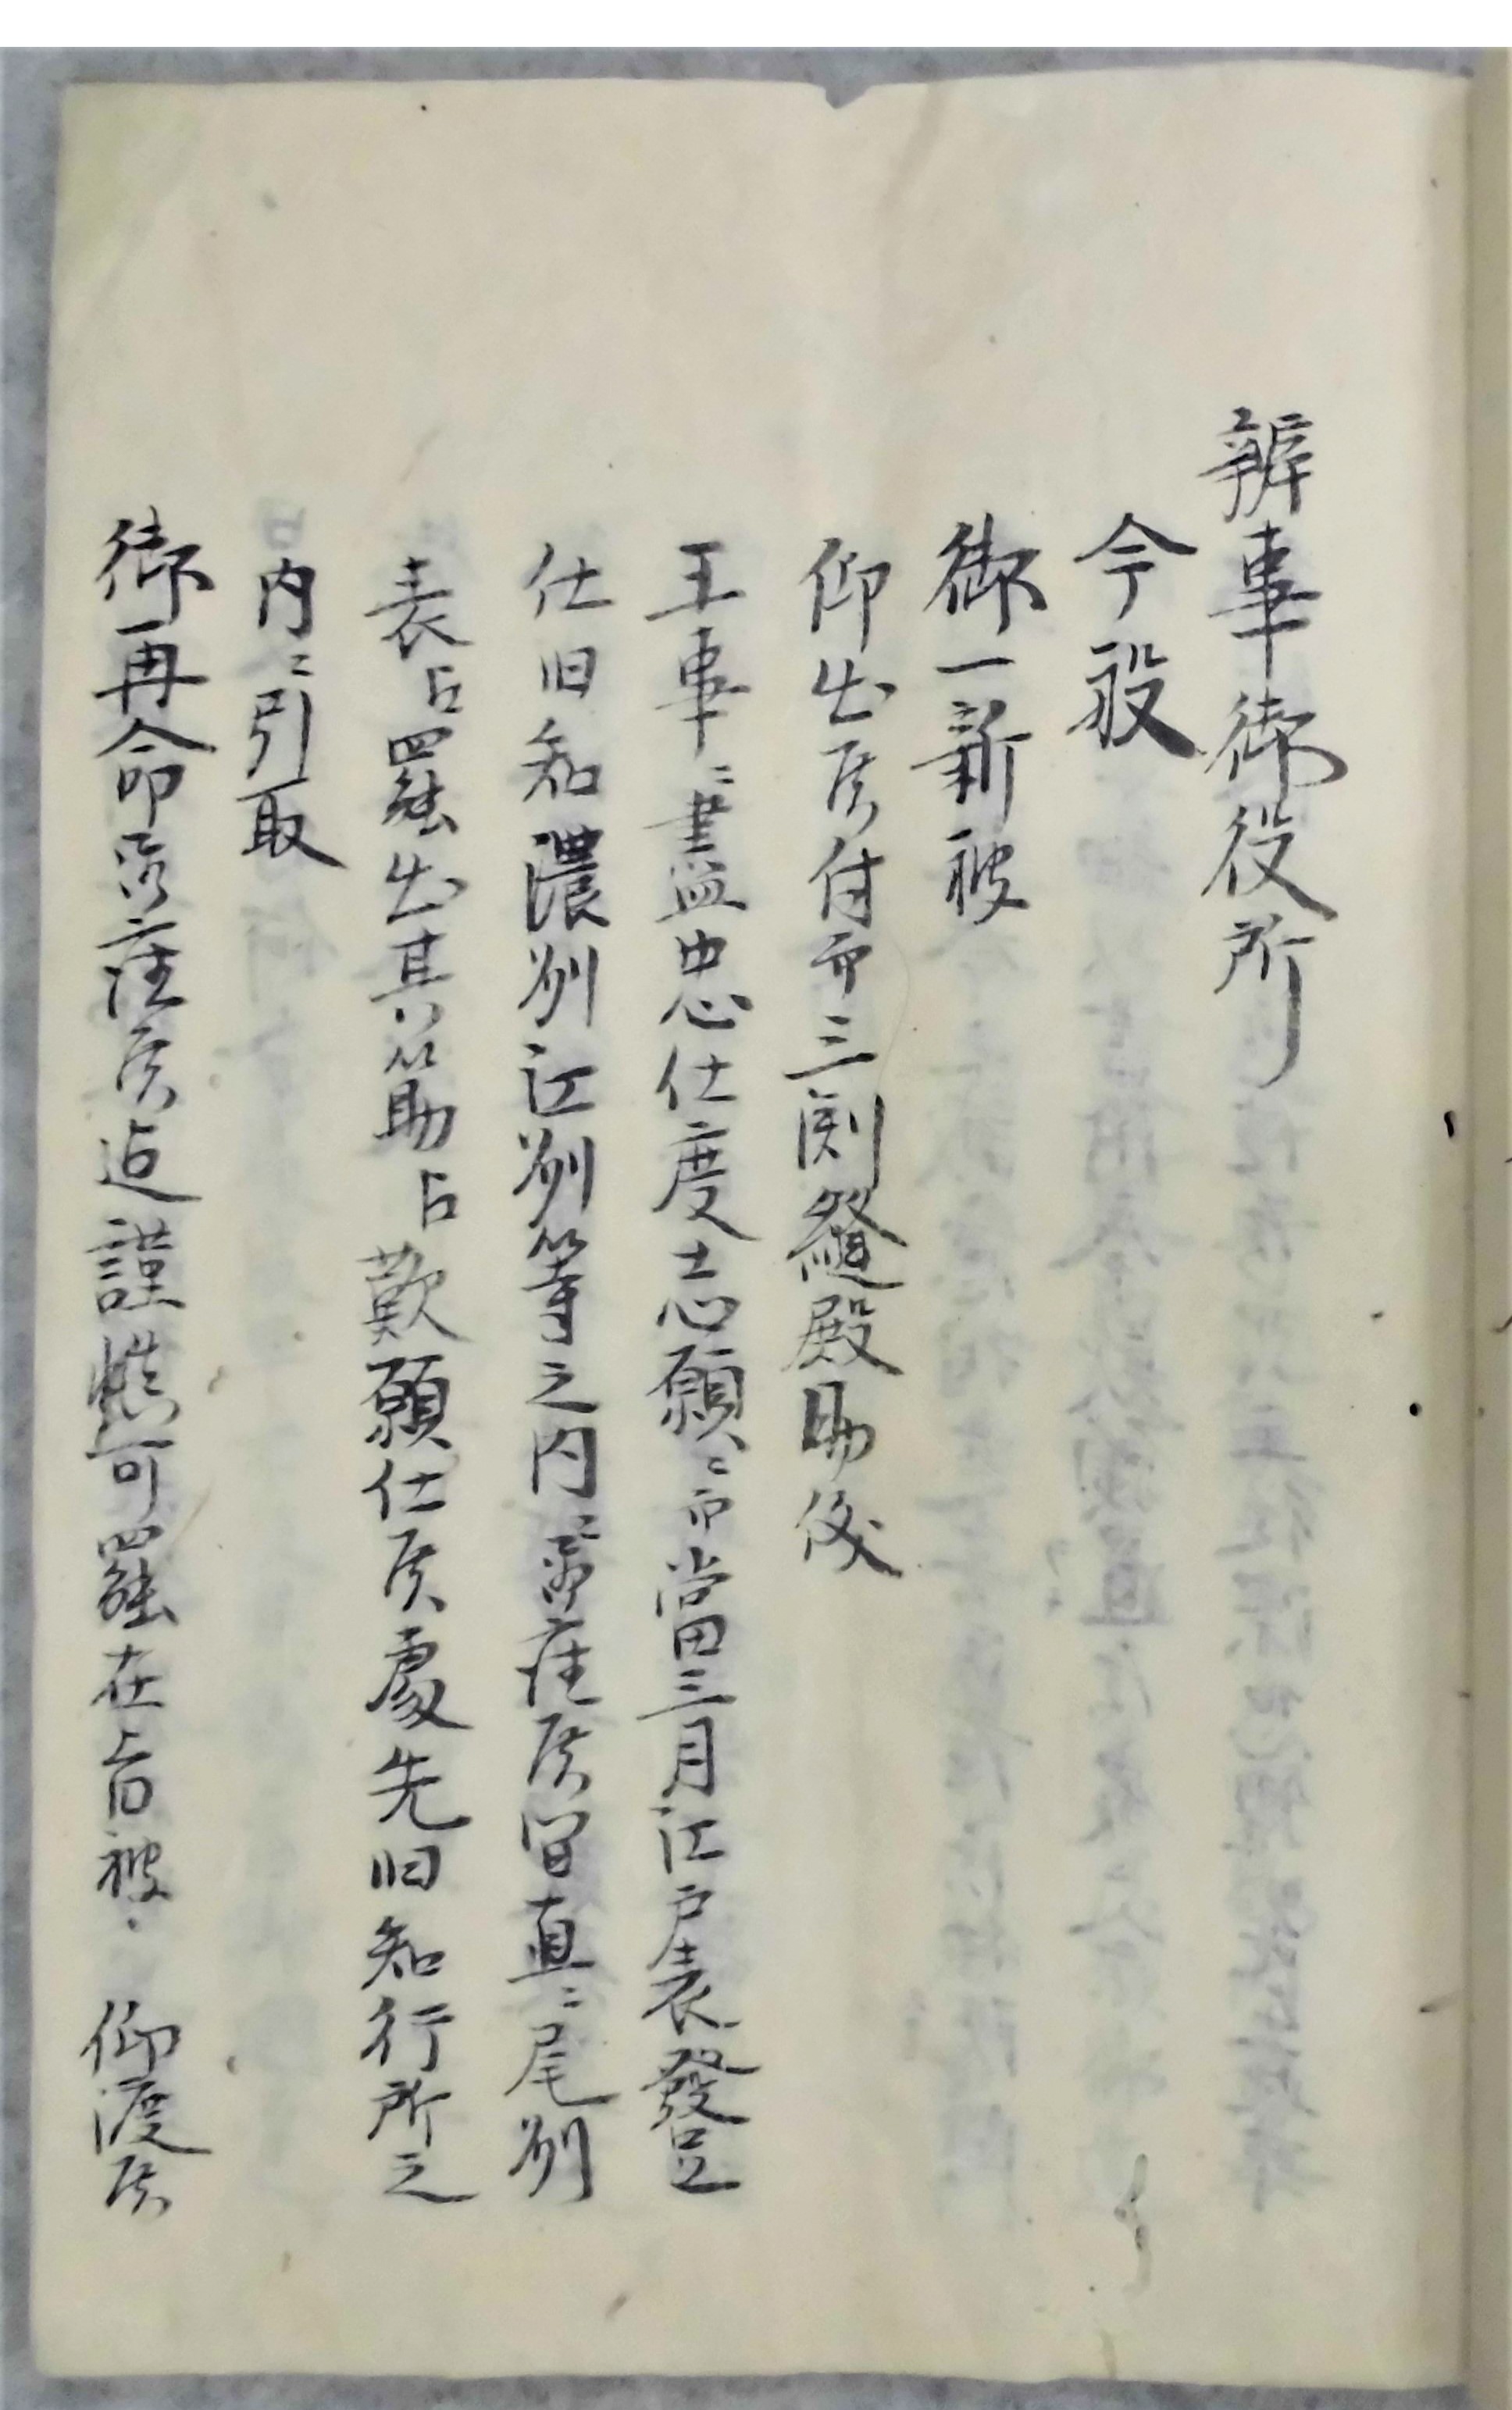 辨事御役所
今般
御一新被
仰出候付而三淵縫殿助儀
王事ニ盡忠仕度志願ニ而當三月江戸表發足
仕旧知濃刕江刕等之内ニ罷在候間直ニ尾刕
表占罷出其筋占歎願仕候處先旧知行所之
内ニ引取
御再命
候迠謹愼可罷在旨被 仰渡候